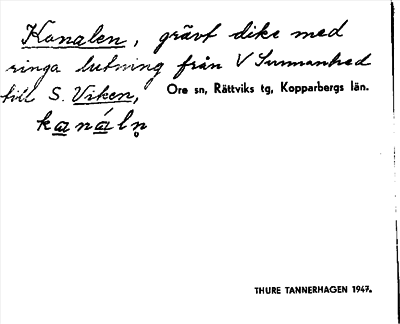 Kanalen, grävt dike med
ringa lutning från V Sunnanhed
till S. Viken, Ore sn, Rättviks tg, Kopparbergs län.
kanáln̥
THURE TANNERHAGEN 1947.